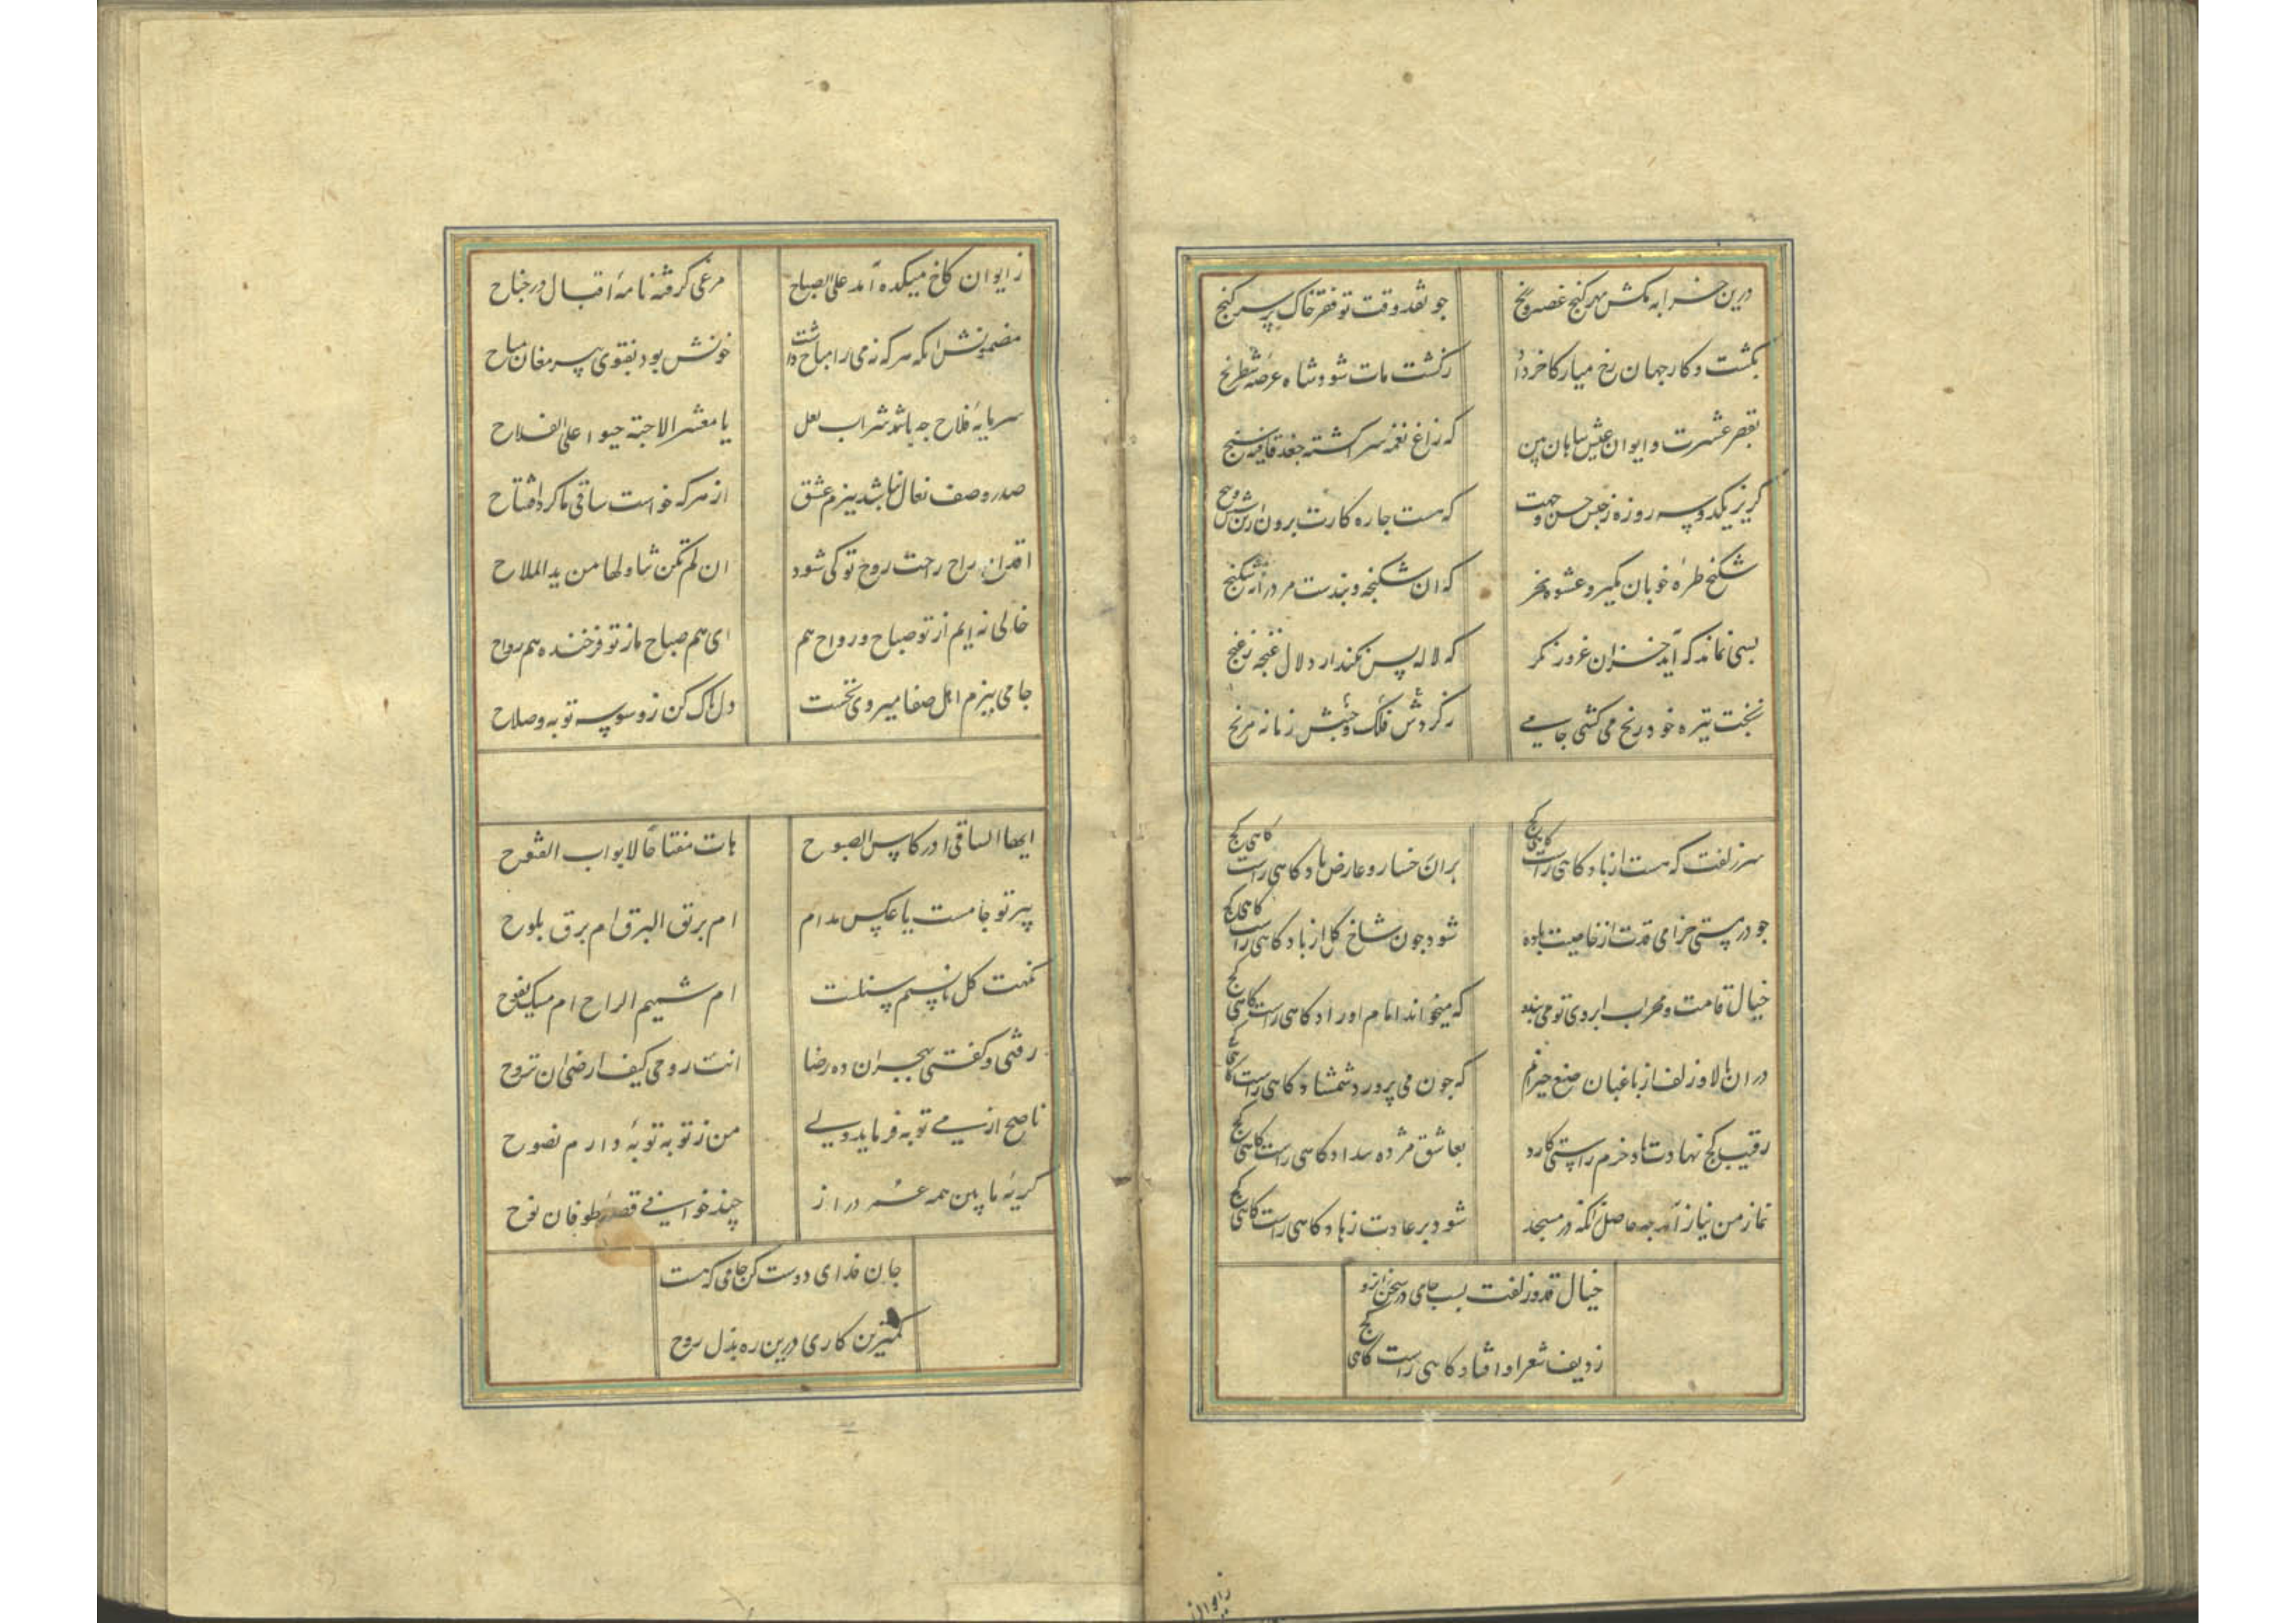 درین خرابه مکش بهر کنج غصه و رنج    جو نقد وقت تو فقر خاک بر سر کنج
بکشت و کار جهان رخ میار کاخر    زکشت مات شود شاه عرصه شطرنج
بقصر عشرت و ایوان عیش شاهان بین    که زاغ نغمه سرا کشته جغد قافیه سنج
که هست جاره کارت برون ازین شش و پنج
شکنج طره خوبان مکیر و عشوه مخر    که ان شکنجه و بندست مرد را نه شکنج
بسی نماند که آید خزان غرور مکر    که لاله پس نکند ار دلال غنجه ز غنج
ز بخت تیره خود رنج می کشی جامی    ز کردش فلک و جنبش زمانه مرنج
سر زلفت که هست از باد کاهی راست کاهی کج    بران رخسار و عارض باد کاهی راست کاهی کج
جو در مستی خرامی قدت از خاصیت باده    شود جون شاخ کل از باد کاهی راست کاهی کج
خیال قامت و محراب ابروی تو می بندد    که میخواند امام اوراد کاهی راست کاهی کج
دران بالا و زلف از باغبان صنع حیرانم    که جون می پرورد شمشاد کاهی راست کاهی کج
رقیب کج نهادت    بعاشق مژده بیداد کاهی راست کاهی کج
نماز من نیاز آمد جه حاصل زانکه در مسجد    شود بر عادت زهاد کاهی راست کاهی کج
خیال قد و زلفت بست جامی در سخن زانرو
ردیف شعر او افتاد کاهی راست کاهی کج
زایوان
ز ایوان کاخ میکده آمد علی الصباح    مرغی کرفته نامه اقبال در جناح
مضمونش انکه هر که نه می را مباح داشت    خونش بود بفتوی پیر مغان مباح
سرمایه فلاح جه باشد شراب لعل    یا معشر الاحبة حیوا علی الفلاح
صدر و صف نعال نباشد ببزم عشق    از هر که خواست ساقی ما کرد افتتاح
اقداح راح راحت روح تو کی شود    ان لم تکن تناولها من ید الملاح
خالی نه ایم از تو صباح و رواح هم    ای هم صباح ما ز تو فرخنده هم رواح
جامی ببزم اهل صفا میروی نخست    دل پاک کن ز وسوسه توبه و صلاح
ایها الساقی ادر کاس الصبوح    هات مفتاحا لابواب الفتوح
پرتو جامست یا عکس مدام    ام بریق البرق ام برق یلوح
نکهت کل یا نسیم سنبلست    ام شمیم الراح ام مسک یفوح
رفتی و کفتی بهجران ده رضا    انت روحی کیف ارضی ان تروح
ناصح از می توبه فرماید ولی    من ز توبه توبه دارم نصوح
کریه ما بین همه عمر دراز    چند خوانی قصه طوفان نوح
جان فدای دوست کن جامی که هست
کمترین کاری درین ره بذل روح